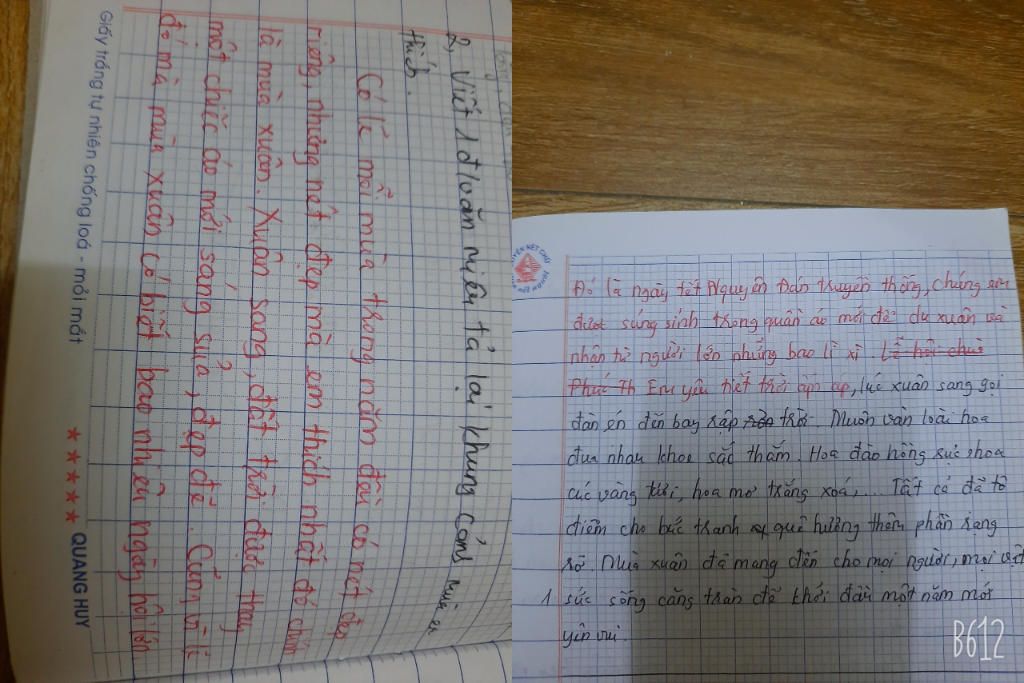 2, Viết 1 đ/văn miêu tả lại khung cảnh mùa em
thích.
Có lẽ mỗi mùa trong năm đều có nét đẹp
riêng, nhưng nét đẹp mà em thích nhất đó chính
là mùa xuân. Xuân sang, đất trời được thay
một chiếc áo mới sáng sủa, đẹp đẽ. Cũng vì lẽ
đó mà mùa xuân có biết bao nhiêu ngày hội lớn
Giấy trắng tự nhiên chống loá - mỏi mắt ★★★★★ QUANG HUY
Đó là ngày tết Nguyên Đán truyền thống, chúng em
được súng sính trong quần áo mới để du xuân và
nhận từ người lớn những bao lì xì. Lễ hội chùa
Phúc Th Em yêu tiết trời ấm áp, lúc xuân sang gọi
đàn én đến bay rập trời. Muôn vàn loài hoa
đua nhau khoe sắc thắm. Hoa đào hồng rực, hoa
cúc vàng tươi, hoa mơ trắng xoá,... Tất cả đã tô
điểm cho bức tranh quê hương thêm phần rạng
rỡ. Mùa xuân đã mang đến cho mọi người, mọi vật
1 sức sống căng tràn để khởi đầu một năm mới
yên vui.
B612